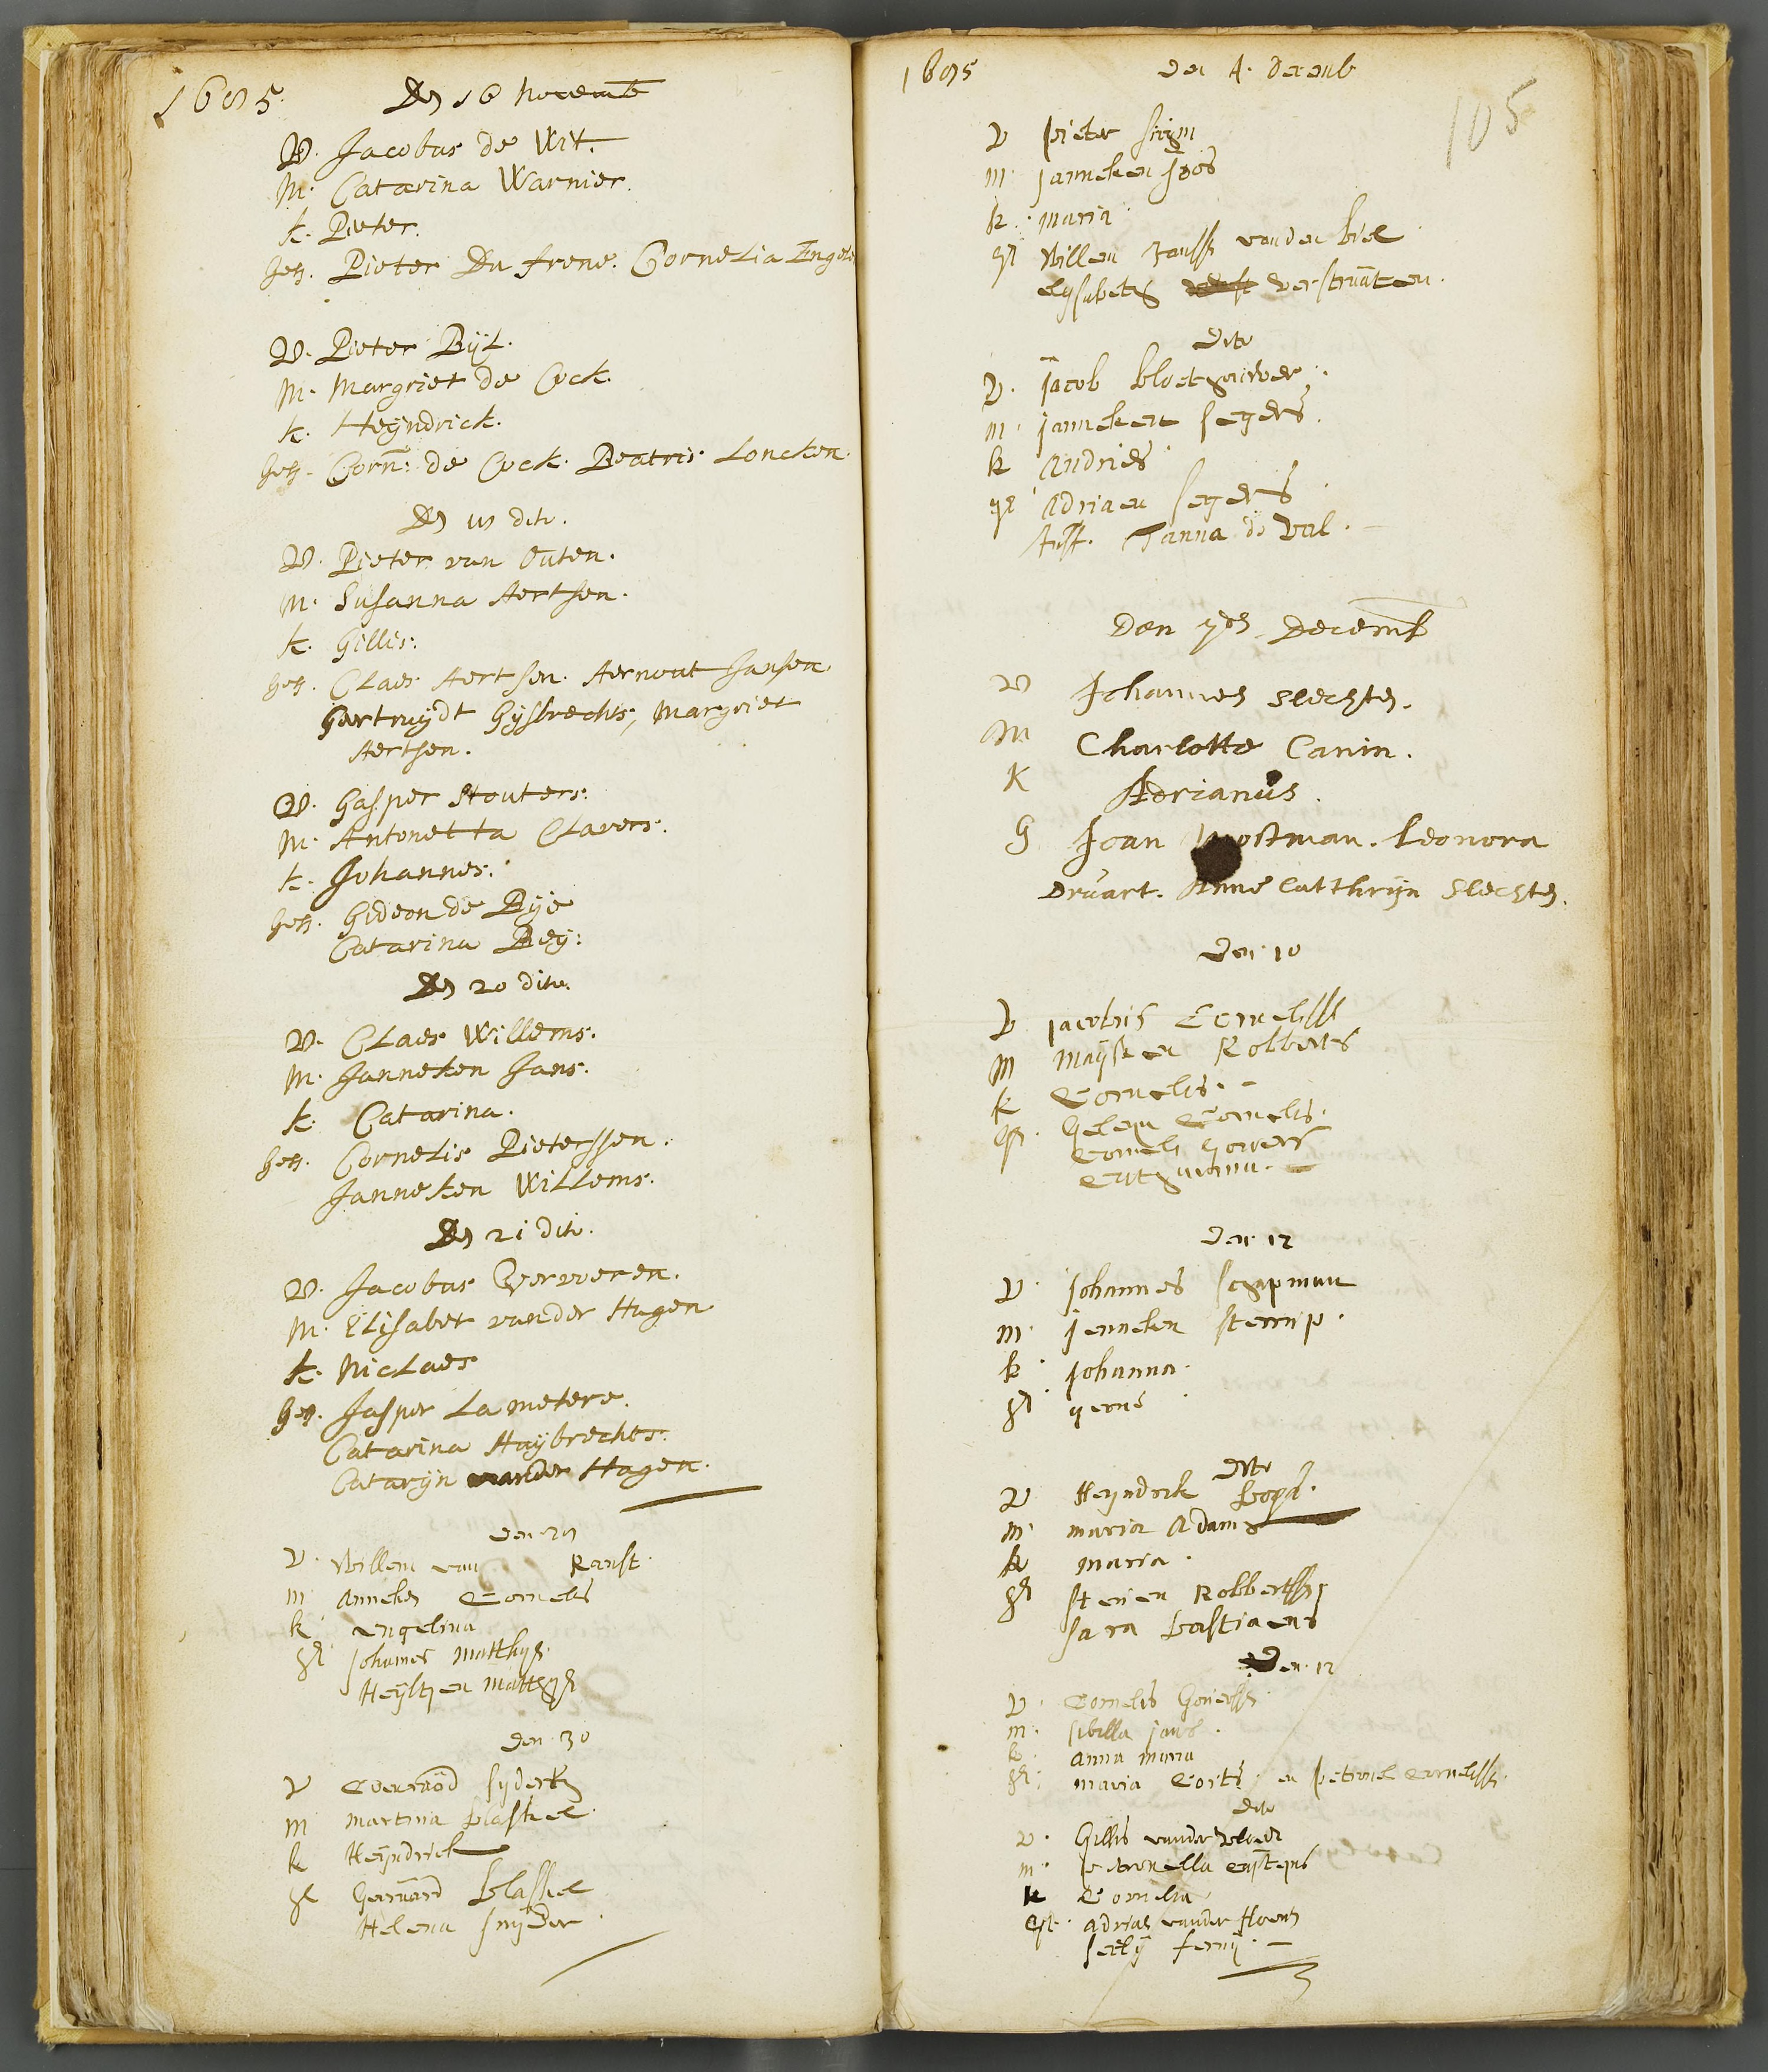 1695. Den 16 novemb
V. Jacobus de Wit.
M. Catarina Warnier.
k. Pieter.
geh. Pieter Du frene. Cornelia Engels
V. Pieter Bijl.
M. Margriet de Cock.
k. Heyndrick.
geh. Corn: de Cock. Beatris Loncken
Den 19 dito.
V. Pieter van Outen.
M. Susanna Aertsen.
k. Gillis.
geh. Claes Aertsen. Aernout Jansen
Gertruijdt Gijsbrechts, Margriet
Aertsen.
V. Gasper Stouters.
M. Antonetta Clavers.
k. Johannes.
geh. Gideon de Bije
Catarina Beij:
Den 20 dito.
V. Claes Willems.
M. Janneken Jans.
k. Catarina.
geh. Cornelis Pieterssen.
Janneken Willems.
Den 21 dito.
V. Jacobus Ververen.
M. Elisabet vander Hagen
k. Niclaes
geh. Jasper La metere.
Catarina Huybrechts.
Catarijn vander Hagen.
den 29
V. Willem van Ranst.
m anneken Cornelis
k engelina
Johannes Matthys
Heyltjen
den 30
V
m martina blaskel
k Heijndrick
Gerraard blaskel
Helena snijder
1695 den 4. decemb
105
V pieter
m janneken
k. maria
Willem Janss vander biel
elysabeth verstraaten.
dito
V. jacob
m. janneken segers.
k andries
adriaen segers
Janna de val.
Den 9den Decemb
V Johannes Slechten.
M Charlotte Canin.
K Adrianus.
G Joan Postman. Leonora
Druart. Anne Catthrijn Slechten.
den 10
V jacobus Cornelisss
m maijken Robberts
k Cornelis.
Cornelis.
den 12
V. johannes scapman
m. jenneken sterrip.
k. johanna.
geene
dito
V Heyndrick
m. maria Adams
k maria.
steven Robbertss
sara bastiaens
den 12
V. Cornelis
m. sibilla jans.
k. anna maria
maria en petronel Cornelisss
dito
v. Gillis vander
m. petronella
k Cornelia
adriaen vander